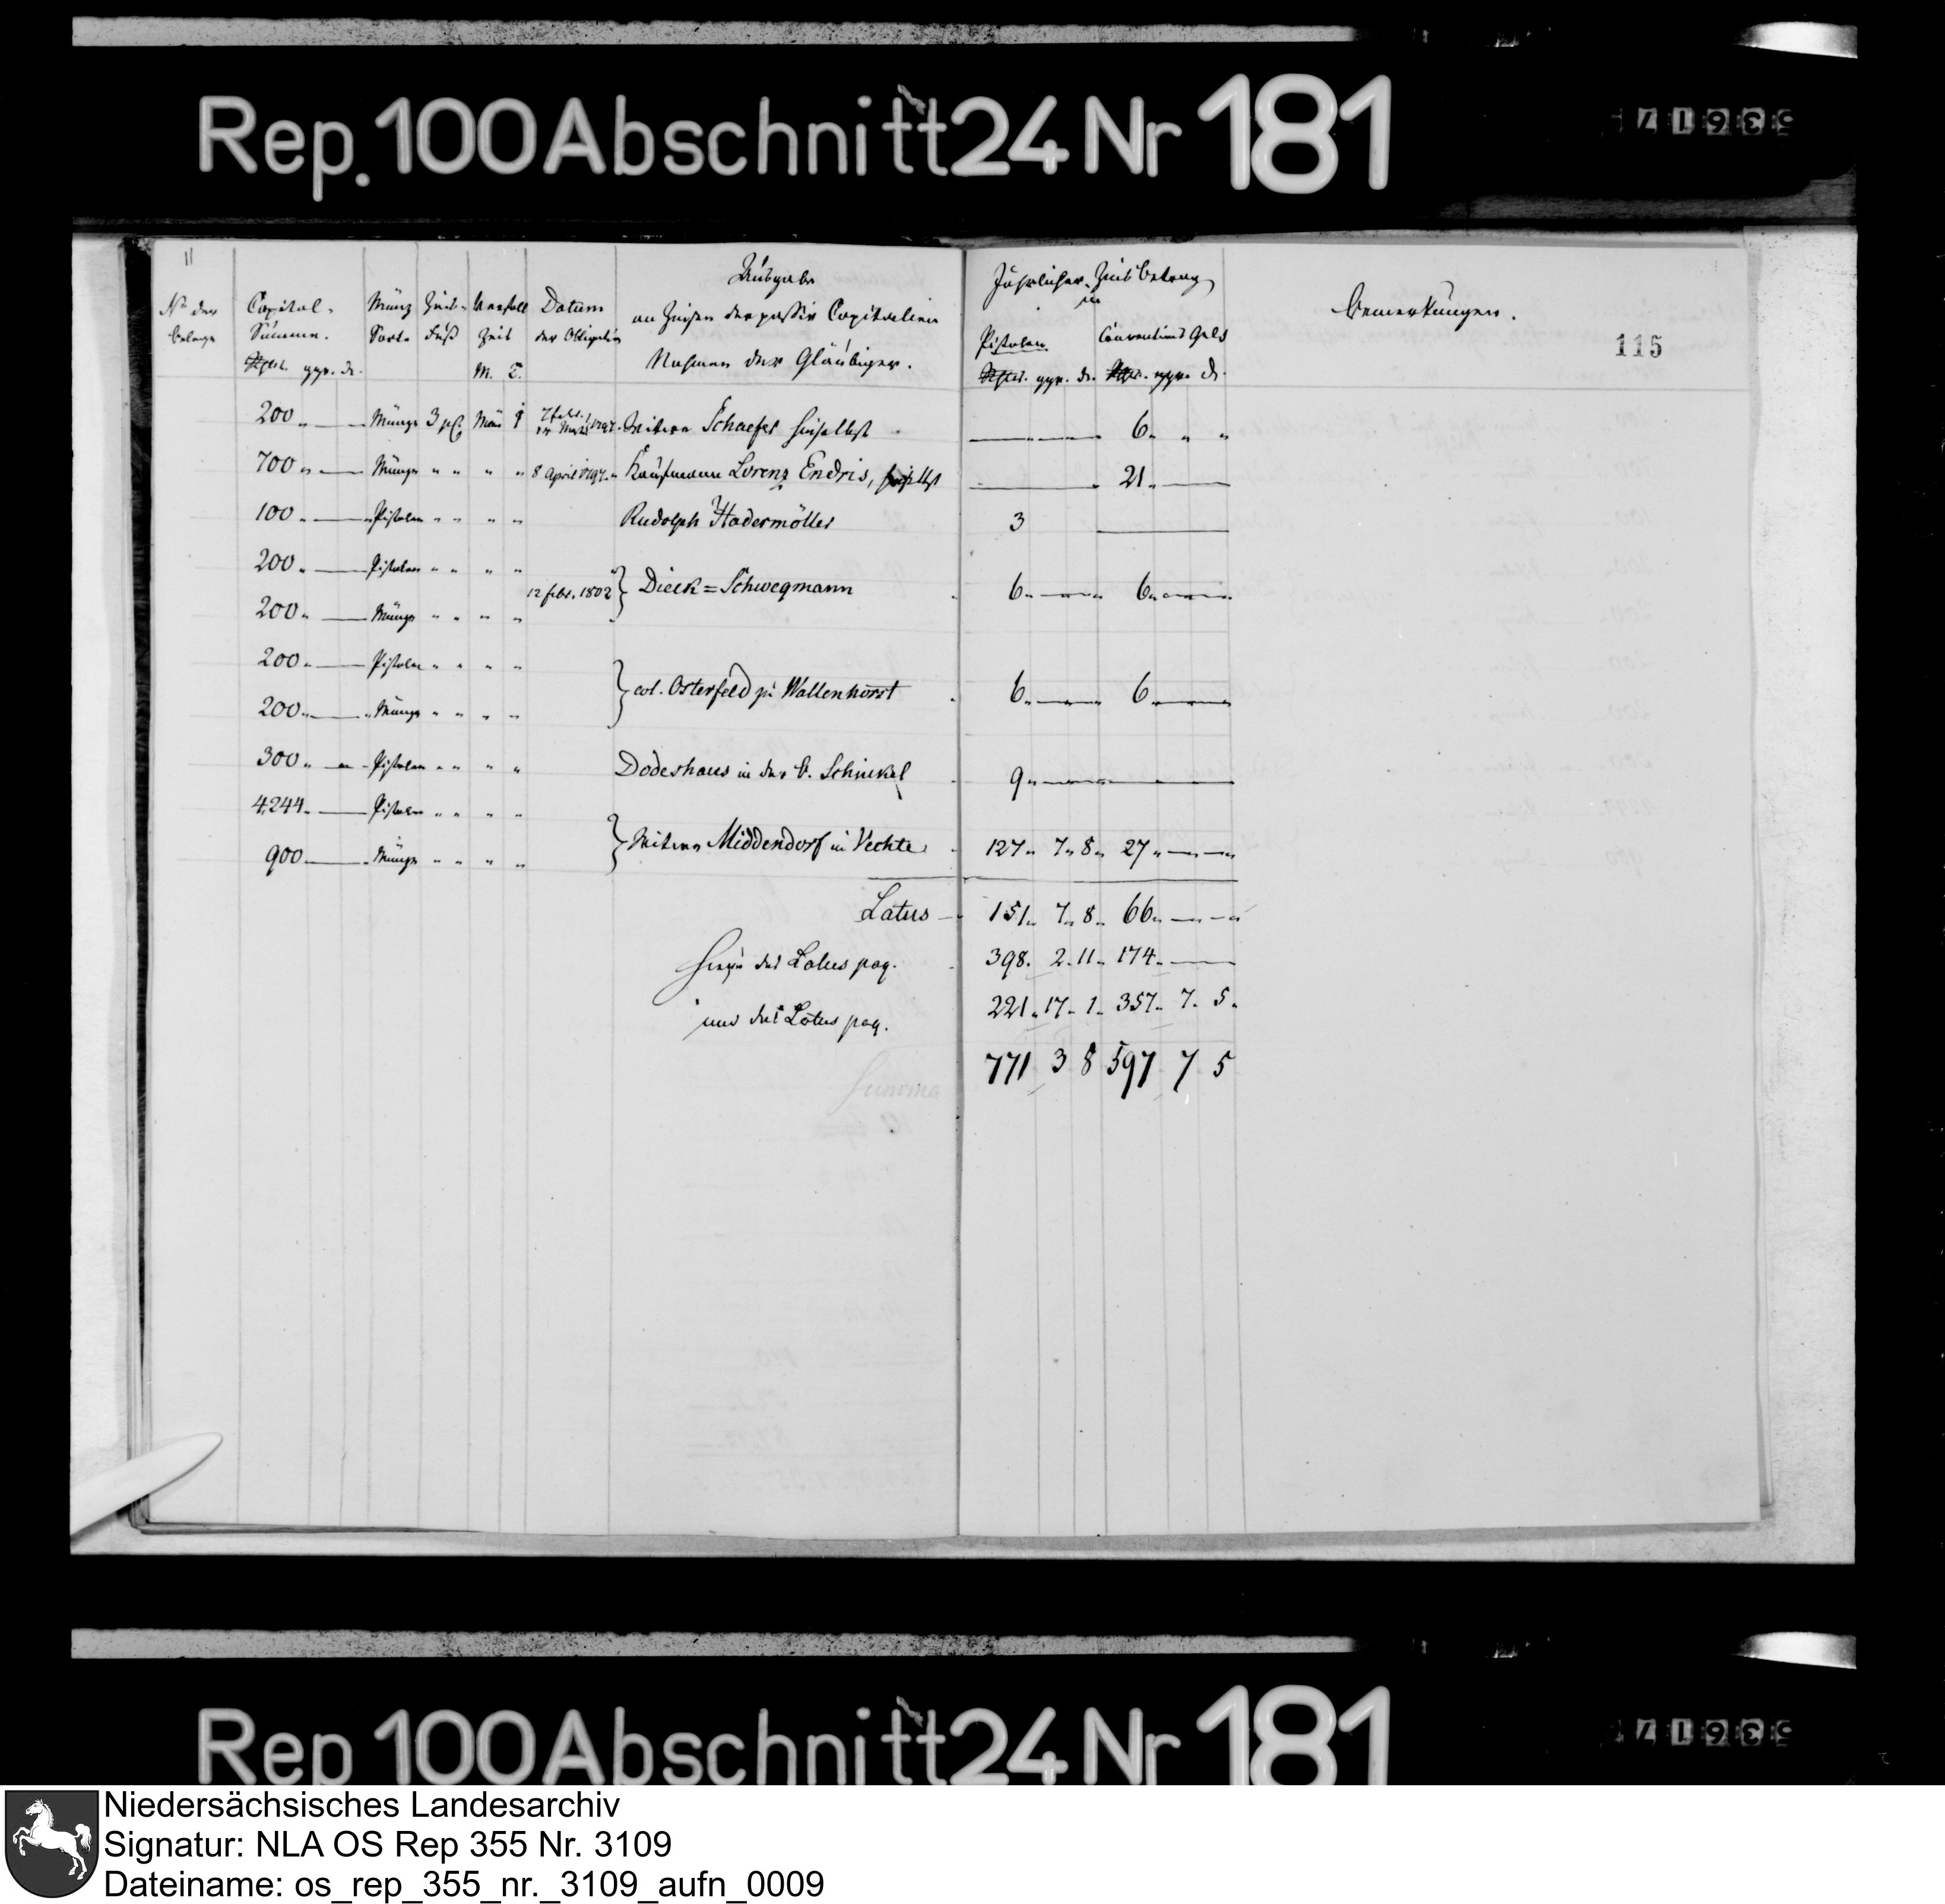 Rep. 100 Abschnitt 24 Nr 181
11
Ausgabe
an Zinsen der passiv Capitalien
Nahmen der Gläubiger.
No der
belege
Capital-
Summe.
Rthlr. ggr. d.
Münz
Sorte
Zins-
Fuß
Verfall
Zeit
M. T.
Datum
der Obligation
Jährlicher Zins betrag
in
Pistolen
Rthlr. ggr. d.
Conventions Geld
Rthlr. ggr. d.
Bemerkungen.
115
200 „ — Münze 3 pC. 1 Witwe Schaefer hieselbst — 6 „ „ „
700 „ — Münze „ „ „ „ 8 April 1797. Kaufmann Lorenz Endris, hieselbst — 21 „ —
100 „ — Pistolen „ „ „ „ Rudolph Hadermöller 3 —
200 „ — Pistolen „ „ „ „
12 febr. 1802 } Dieck = Schwegmann 6 „ — 6 „ —
200 „ — Münze „ „ „ „
200 „ — Pistolen „ „ „ „
} col. Osterfeld zu Wallenhorst 6 „ — 6 „ —
200 „ — Münze „ „ „ „
300 „ — Pistolen „ „ „ „ Dodeshaus in der B. Schinkel 9 „ —
4244 „ — Pistolen „ „ „ „
} Witwe Middendorf in Vechte 127 „ 7 „ 8 „ 27 „ —
900 — Münze „ „ „ „
Latus — 151 „ 7 „ 8 „ 66 „ —
Hiezu das Latus pag. 398. 2. 11 „ 174 „ —
und das Latus pag. 221 „ 17 „ 1 „ 357 „ 7 „ 5 „
771 3 8 597 7 5
Summa
Rep 100 Abschnitt 24 Nr 181
Niedersächsisches Landesarchiv
Signatur: NLA OS Rep 355 Nr. 3109
Dateiname: os_rep_355_nr._3109_aufn_0009